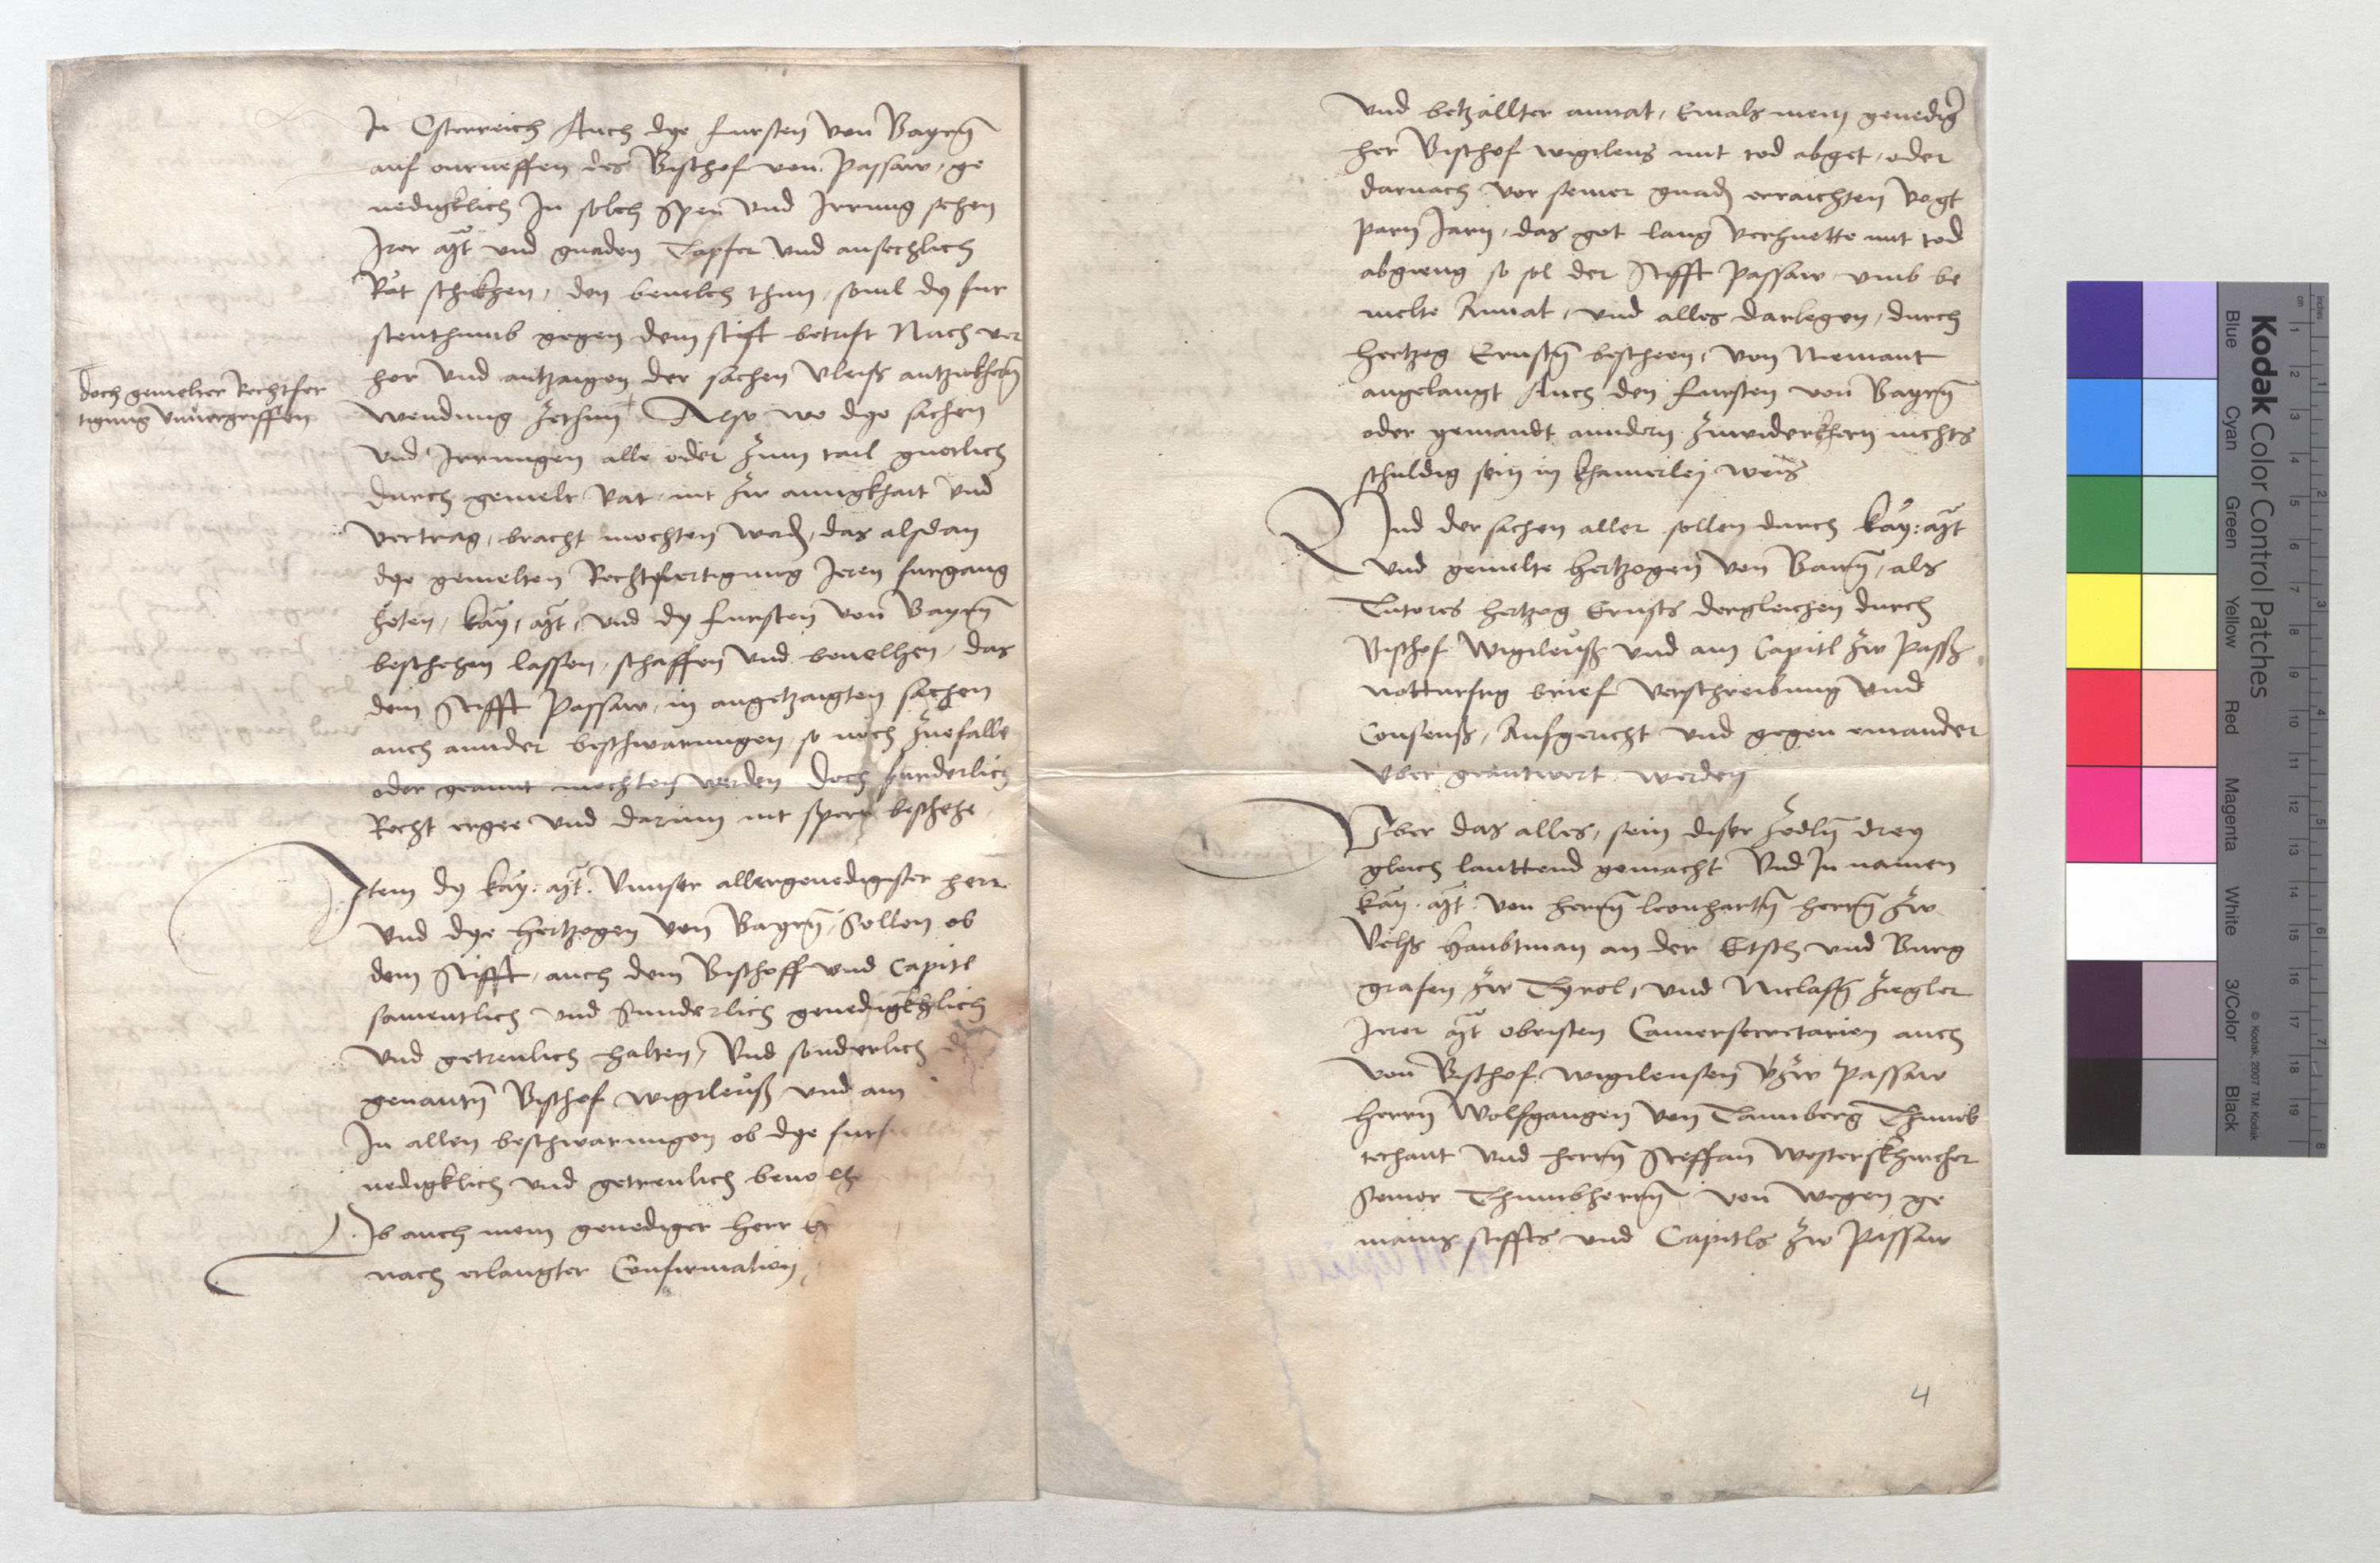 In Osterreich Auch dye fursten von Bayrn̄
auf anrueffen des Bischof von Passaw, ge
nedigklich In solch Spen und Irrung sehen
Irer Mt und gnaden Tapfer und ansechlich
Rät schikhen, den bevelch thun, sovil dy fur
stenthumb gegen dem stift betrift Nach ver
hor und antzaigen der sachen vleiss antzukhern̄
doch gemelter Rechtfer
tigung unvergriffen
wendung zethun + Also wo dye sachen
und Irrungen alle oder zum tail guetlich
durch gemelt Rat nit zw ainigkhait und
vertrag, bracht mochten werdn, das alsdan
dye gemelten Rechtfertigung Iren furgang
heten, kay. Mt, und dy fursten von Bayrn̄
beschehen lassen, schaffen und bevelhen, das
dem Stifft Passaw, in angetzaigten sachen
auch annder beschwarungen, so noch zuefalle
oder geannt mochten werden doch furderlich
Recht ergee und darinn nit sperr beschehe
Item dy kay. Mt. Unnser allergenedigister herr
Und dye hertzogen von Bayrn̄, Sollen ob
dem Stifft, auch dem Bischoff und Capitl
samentlich und Sunderlich genedigkhlich
Und getreulich halten, Und sonderlich
genantn̄ Bischof Wigileuß und ain
In allen beschwarungen ob dye
nedigklich und getreulich
Ob auch mein genediger herr
nach erlangter Confirmation
Und betzallter annat, Emals mein genedigr
her Bischof Wigileus mit tod abget, oder
darnach vor seiner gnadn erraichten Vogt
parn Jarn, das got lang verhuette mit tod
abgieng so sol der Stifft Passaw umb be
melte Annat, und alles darlegen, durch
hertzog Ernstn̄ bescheen, von Niemant
angelangt Auch den fursten von Bayrn̄
oder yemandt anndern zuwiderkhern nichts
schuldig sein in khainerley weis
Und der sachen aller sollen durch kay: Mt
Und gemelte hertzogen von Bairn̄, als
Tutores hertzog Ernsts dergleichen durch
Bischof Wigileuß und ain Capitl zw Pass
notturftig brief verschreibung und
Consenß, Aufgericht und gegen einander
uber geantwort werden
Uber das alles, sein diser zedln̄ drey
gleich lauttend gemacht Und In namen
kay. Mt. von herrn̄ leonhartn̄ herrn̄ zw
Velss haubtman an der Etsch und Burg
grafen zw Tyrol, und Niclasn̄ Ziegler
Irer Mt obristen Camersecretarien auch
von Bischof Wigileusen zw Passaw
herrn Wolfgangen von Tannberg Thumb
techant und herrn̄ Steffan Westerskhircher
Seiner Thumbherrn̄, von wegen ge
mains stiffts und Capitls zw Passaw
4
Kodak Color Control Patches
Blue Cyan Green Yellow Red Magenta White 3/Color Black
© Kodak, 2007 TM: Kodak